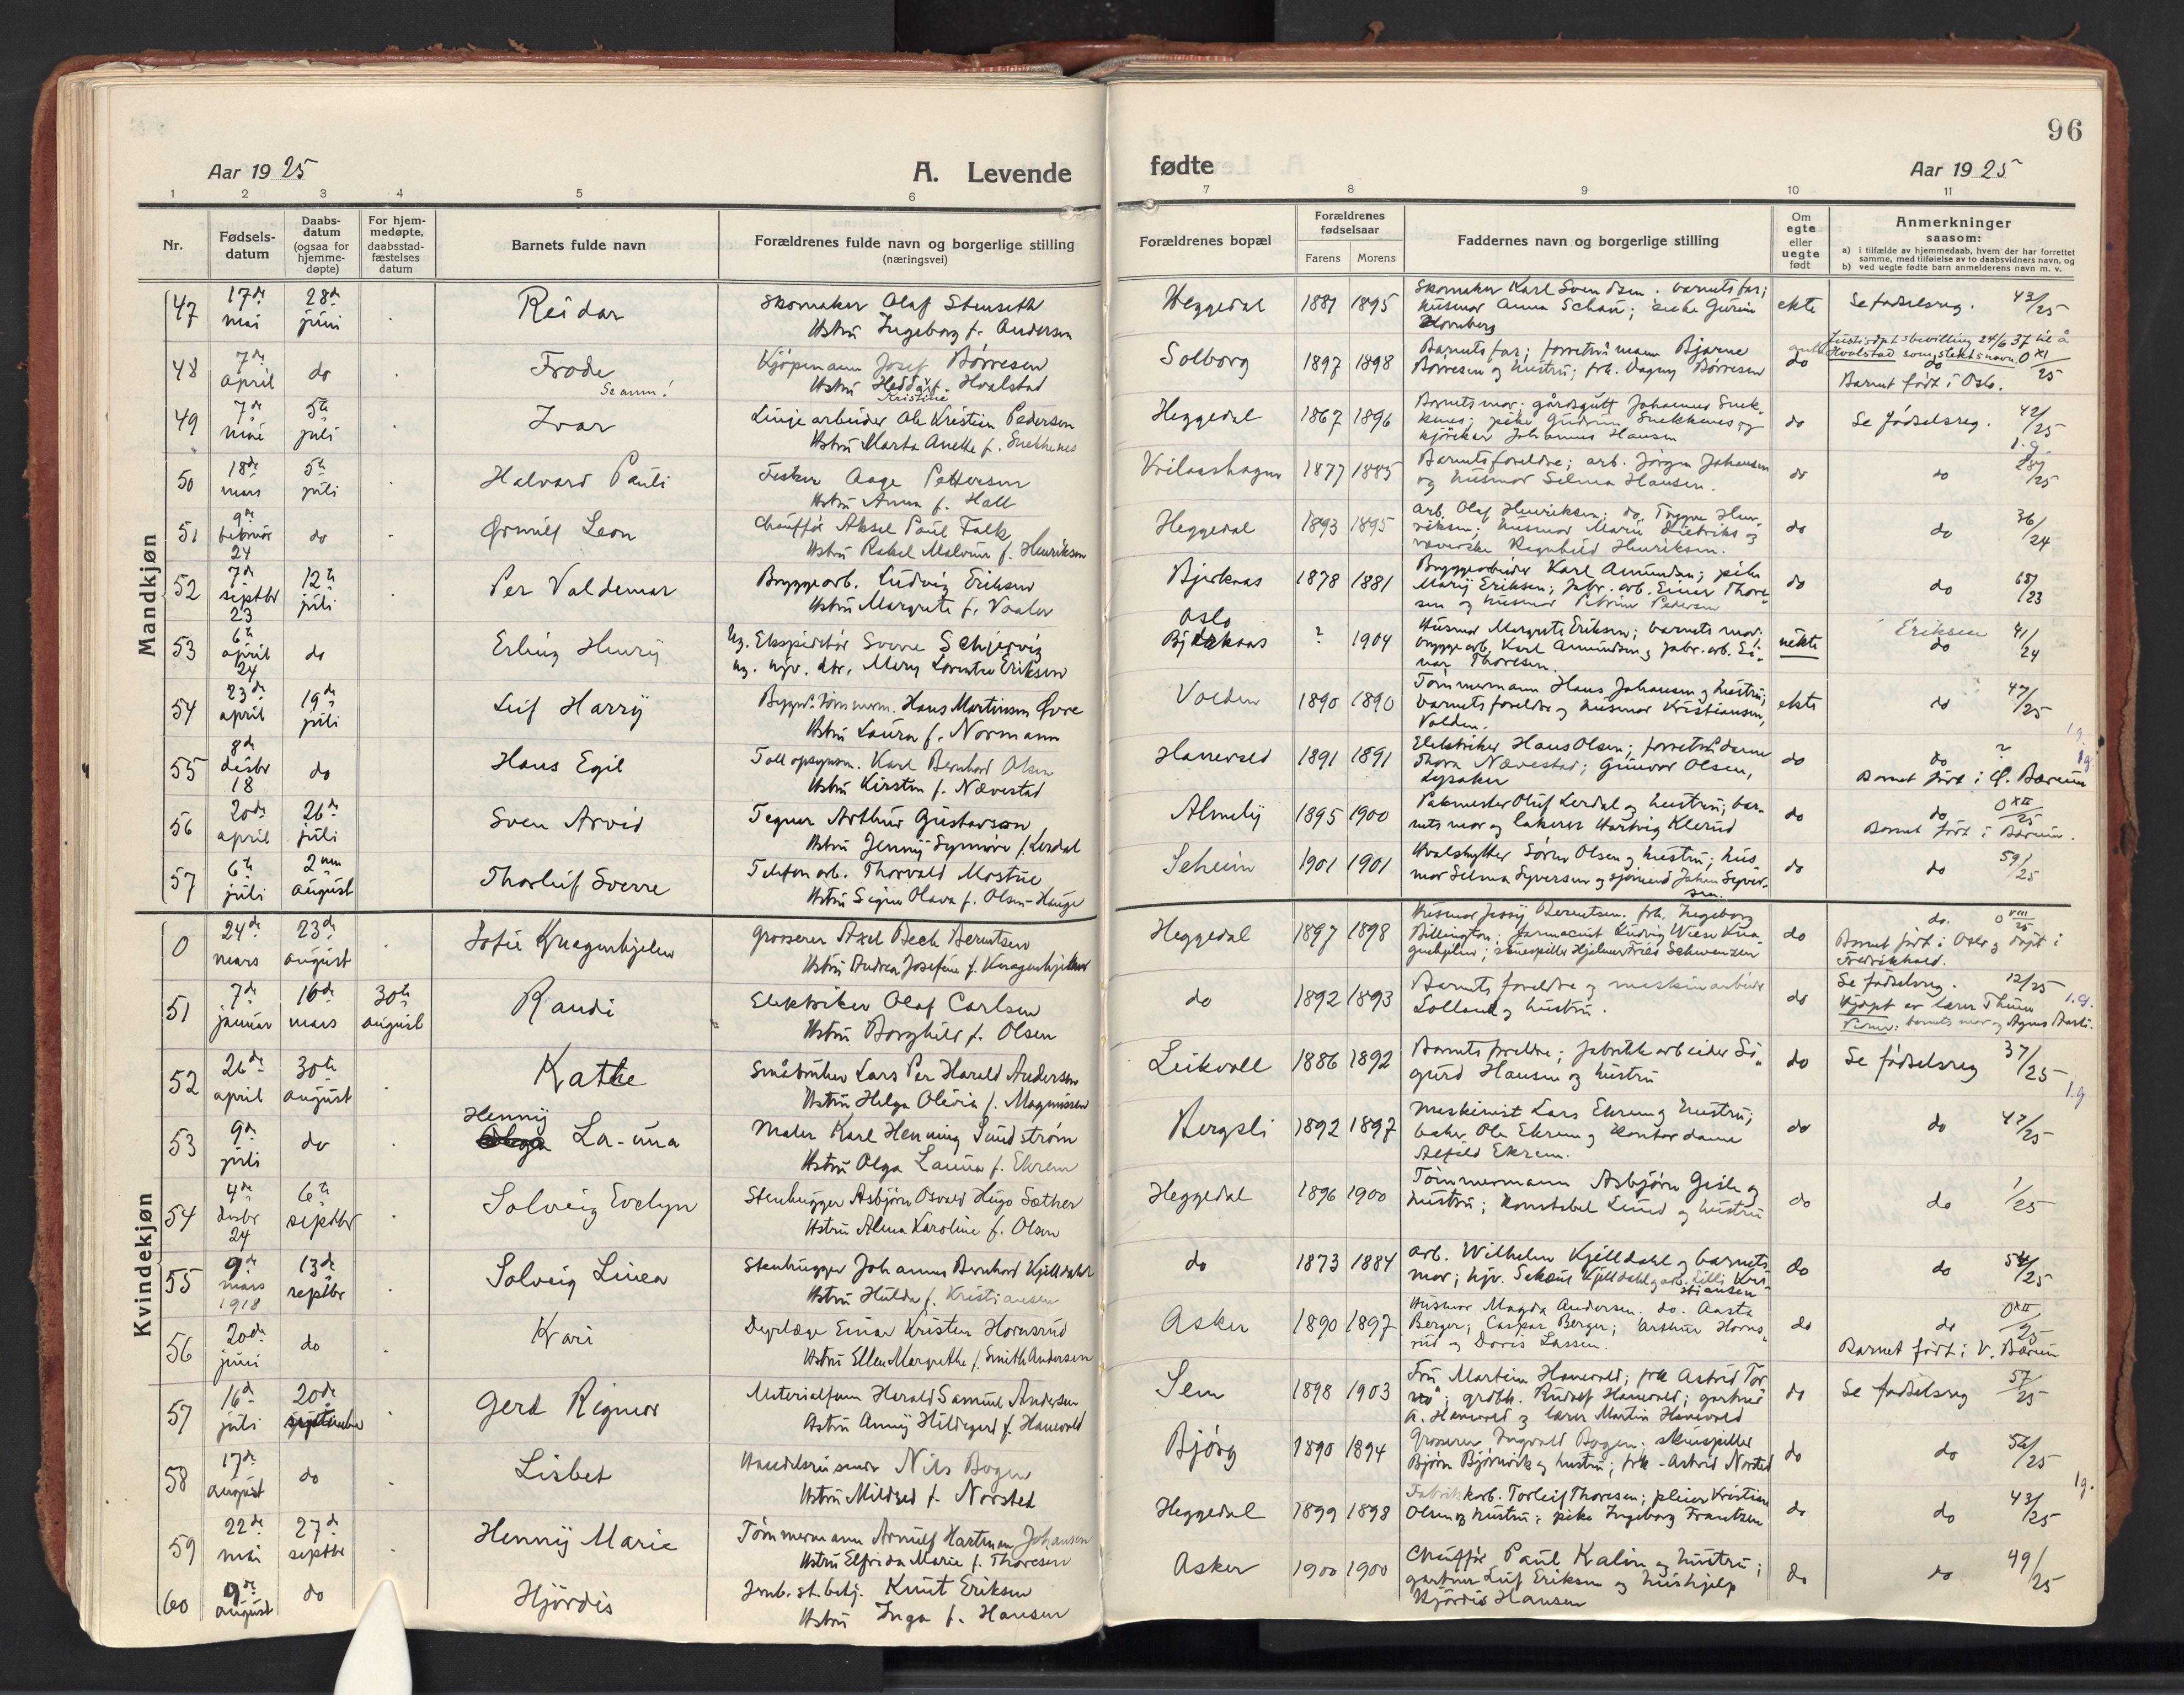 96
Aar 1925
A. Levende
fødte
Aar 1925
1 2 3 4 5 6
7 8 9 10 11
Nr.
Fødsels-
datum
Daabs-
datum
(ogsaa for
hjemme-
døpte)
For hjem-
medøpte,
daabsstad-
fæstelses
datum
Barnets fulde navn
Forældrenes fulde navn og borgerlige stilling
(næringsvei)
Forældrenes bopæl
Forældrenes
fødselsaar
Farens Morens
Faddernes navn og borgerlige stilling
Om
egte
eller
uegte
født
Anmerkninger
saasom:
a) i tilfælde av hjemmedaab, hvem der har forrettet
samme, med tilføielse av to daabsvidners navn, og
b) ved uegte fødte barn anmelderens navn m. v.
Mandkjøn
47 17de mai 28de juni Reidar
Skomaker Olaf Stenseth
Hstru Ingeborg f. Andersen
Heggedal 1887 1895
Skomaker Karl Svendsen. barnets far;
husmor Anna Schau;
ekte Se fødselsreg. 43/25
48 7de april do Frode
Se anm!
Kjøpmann Josef Børresen
Hstru Hedda f. Hvalstad
Kristine
Solborg 1897 1898
Barnets far; forretn.mann Bjarne
Børresen og hustru; frk. Dagny Børresen
do
Justisdpts bevilling 24/6 37 til å
Hvalstad som slektsnavn 0 XI/25
do
Barnet født i Oslo.
49 7de mai 5te juli Ivar
Linjearbeider Ole Kristian Pedersen
Hstru Marta Anette f. Snekkenes
Heggedal 1867 1896
Barnets mor; gårdsgutt Johannes Snek-
kenes; pike Gudrun Snekkenes og
kjørekar Johannes Hansen
do Se fødselsreg. 42/25
1.g.
50 18de mars 5te juli Halvard Pauli
Fisker Aage Pettersen
Hstru Anna f. Hall
1877 1885
Barnets foreldre; arb. Jørgen Johansen
og husmor Selma Hansen.
do do 28/25
51 9de februar 24 do Ørnulf Leon
Chauffør Aksel Paul Falk
Hstru Rakel Malvine f. Henriksen
Heggedal 1893 1895
Arb. Olaf Henriksen; do. Trygve Hen-
riksen; husmor Marie Diedriks og
væverske Ragnhild Henriksen.
do do 36/24
52 7de septbr 23 12te juli Per Valdemar
Bryggearb. Ludvig Eriksen
Hstru Margrete f. Vaaler
Bjerkaas 1878 1881
Bryggearbeider Karl Amundsen; pike
Marij Eriksen; fabr. arb. Einar Thore-
sen og husmor Petrine Pedersen
do do 68/23
53 6te april 24 do Erling Henrij
Ug. Ekspeditør Sverre Schjervig
ug. Mery Lorentse Eriksen
Oslo
Bjerkaas ? 1904
Husmor Margrete Eriksen; barnets mor;
bryggearb. Karl Amundsen og fabr. arb. Ei-
nar Thoresen.
uekte Eriksen do 41/24
54 23de april 19de juli Leif Harrij
Bygn. tømmerm. Hans Martinsen Øvre
Hstru Laura f. Normann
Volden 1890 1890
Tømmermann Hans Johansen og hustru;
barnets foreldre og husmor Kristiansen,
Volden.
ekte do 47/25
1g.
55 8de desbr 18 do Hans Egil
Tollopsynsm. Karl Bernhard Olsen
Hstru Kirsten f. Nævestad
Hanevold 1891 1891
Elektriker Hans Olsen; forretn.dame
Thora Nævestad; Gunvor Olsen,
Lysaker
do do ?
Barnet født i Ø. Bærum
56 20de april 26de juli Sven Arvid
Tegner Arthur Gustavson
Hstru Jennij Synnøve f. Lerdal
Almelij 1895 1900
Pakmester Oluf Lerdal og hustru; bar-
nets mor og lakerer Hartvig Klerud
do do 0 XII/25
Barnet født i Bærum.
57 6te juli 2nen august Thorleif Sverre
Telefonarb. Thorvald Mostue
Hstru Signe Olava f. Olsen-Hauge
Seheim 1901 1901
Hvalskytter Søren Olsen og hustru; hus-
mor Selma Syversen og sjømand Johan Syver-
sen.
do do 59/25
Kvindekjøn
0 24de mars 23de august Sofie Knagenhjelm
Grosserer Axel Bech Berntsen
Hstru Andrea Josefine f. Knagenhjelm
Heggedal 1897 1898
Husmor Jossij Berntsen. frk. Ingeborg
Billington; farmaceut Ludvig Wiese Kna-
genhjelm; skuespiller Hjalmar Fries Schwenzen
do do. 0 VIII/25
Barnet født i Oslo og døpt i
Fredrikhald.
51 7de januar 16de mars 30te august Randi
Elektriker Olaf Carlsen
Hstru Borghild f. Olsen
do 1892 1893
Barnets foreldre og maskinarbeider
Lolland og hustru.
do Se fødselsreg. 12/25
Hjdøpt av lærer Thune 1.g.
Vidner: barnets mor og Agnes Barli.
52 26de april 30te august Kathe
Småbruker Lars Per Harald Andersen
Hstru Helga Olivia f. Magnussen
Leikvoll 1886 1892
Barnets foreldre; fabrikkarbeider Si-
gurd Hansen og hustru
do Se fødselsreg 37/25
1.g.
53 9de juli do Hennij Olga La-una
Maler Karl Henning Sundstrøm
Hstru Olga Launa f. Ekrem
Bergsli 1892 1897
Maskinist Lars Ekrem og hustru;
baker Ole Ekrem og kontordame
Alfild Ekrem.
do do 47/25
54 4de desbr 24 6te septbr Solveig Evelyn
Stenhugger Asbjørn Osvald Hugo Sæther
Hstru Alma Karoline f. Olsen
Heggedal 1896 1900
Tømmermann Asbjørn Gisle og
hustru; Konstabel Lund og hustru
do do 1/25
55 9de mars 1918 13de septbr Solveig Linea
Stenhugger Johannes Bernhard Kjelldahl
Hstru Hulda f. Kristiansen
do 1873 1884
Arb. Wilhelm Kjelldahl og barnets
mor; Kjelldahl og arb. Lilli Kri-
stiansen
do do 54/25
56 20de juni do Kari
Dyrlæge Einar Kristen Hornsrud
Hstru Ellen Margrethe f. Smith Andersen
Asker 1890 1897
Husmor Magda Andersen. do. Aasta
Berger; Caspar Berger; Arthur Horns-
rud og Doris Lassen.
do do 0 XII/25
Barnet født i V. Bærum
57 16de juli 20de september Gerd Rigmor
Materialforv. Harald Samuel Andersen
Hstru Annij Hildegard f. Hanevold
Sem 1898 1903
Fru Martin Hanevold; frk Astrid Tor-
vø; grdbr. Rudolf Hanevold; gartner
A. Hanevold og lærer Martin Hanevold
do Se fødselsreg 57/25
58 17de august do Lisbet
Handelsreisende Nils Bogen
Hstru Mildred f. Norsted
Bjørg 1890 1894
Grosserer Ingvald Bogen; skuespiller
Bjørn Bjørnevik og hustru; frk. Astrid Norsted
do do 56/25
1g.
59 22de mai 27de septbr Hennij Marie
Tømmermann Arnulf Hartman Johansen
Hstru Elfrida Marie f. Thoresen
Heggedal 1899 1898
Fabrikkarb. Torleif Thoresen; pleier Kristian
Olsen og hustru; pike Ingeborg Frantzen
do do 43/25
60 9de august do Hjørdis
Jernb. st. betj. Knut Eriksen
Hstru Inga f. Hansen
Asker 1900 1900
Chauffør Paul Kalin og hustru;
gartner Leif Eriksen og hushjelp
Hjørdis Hansen
do do 49/25